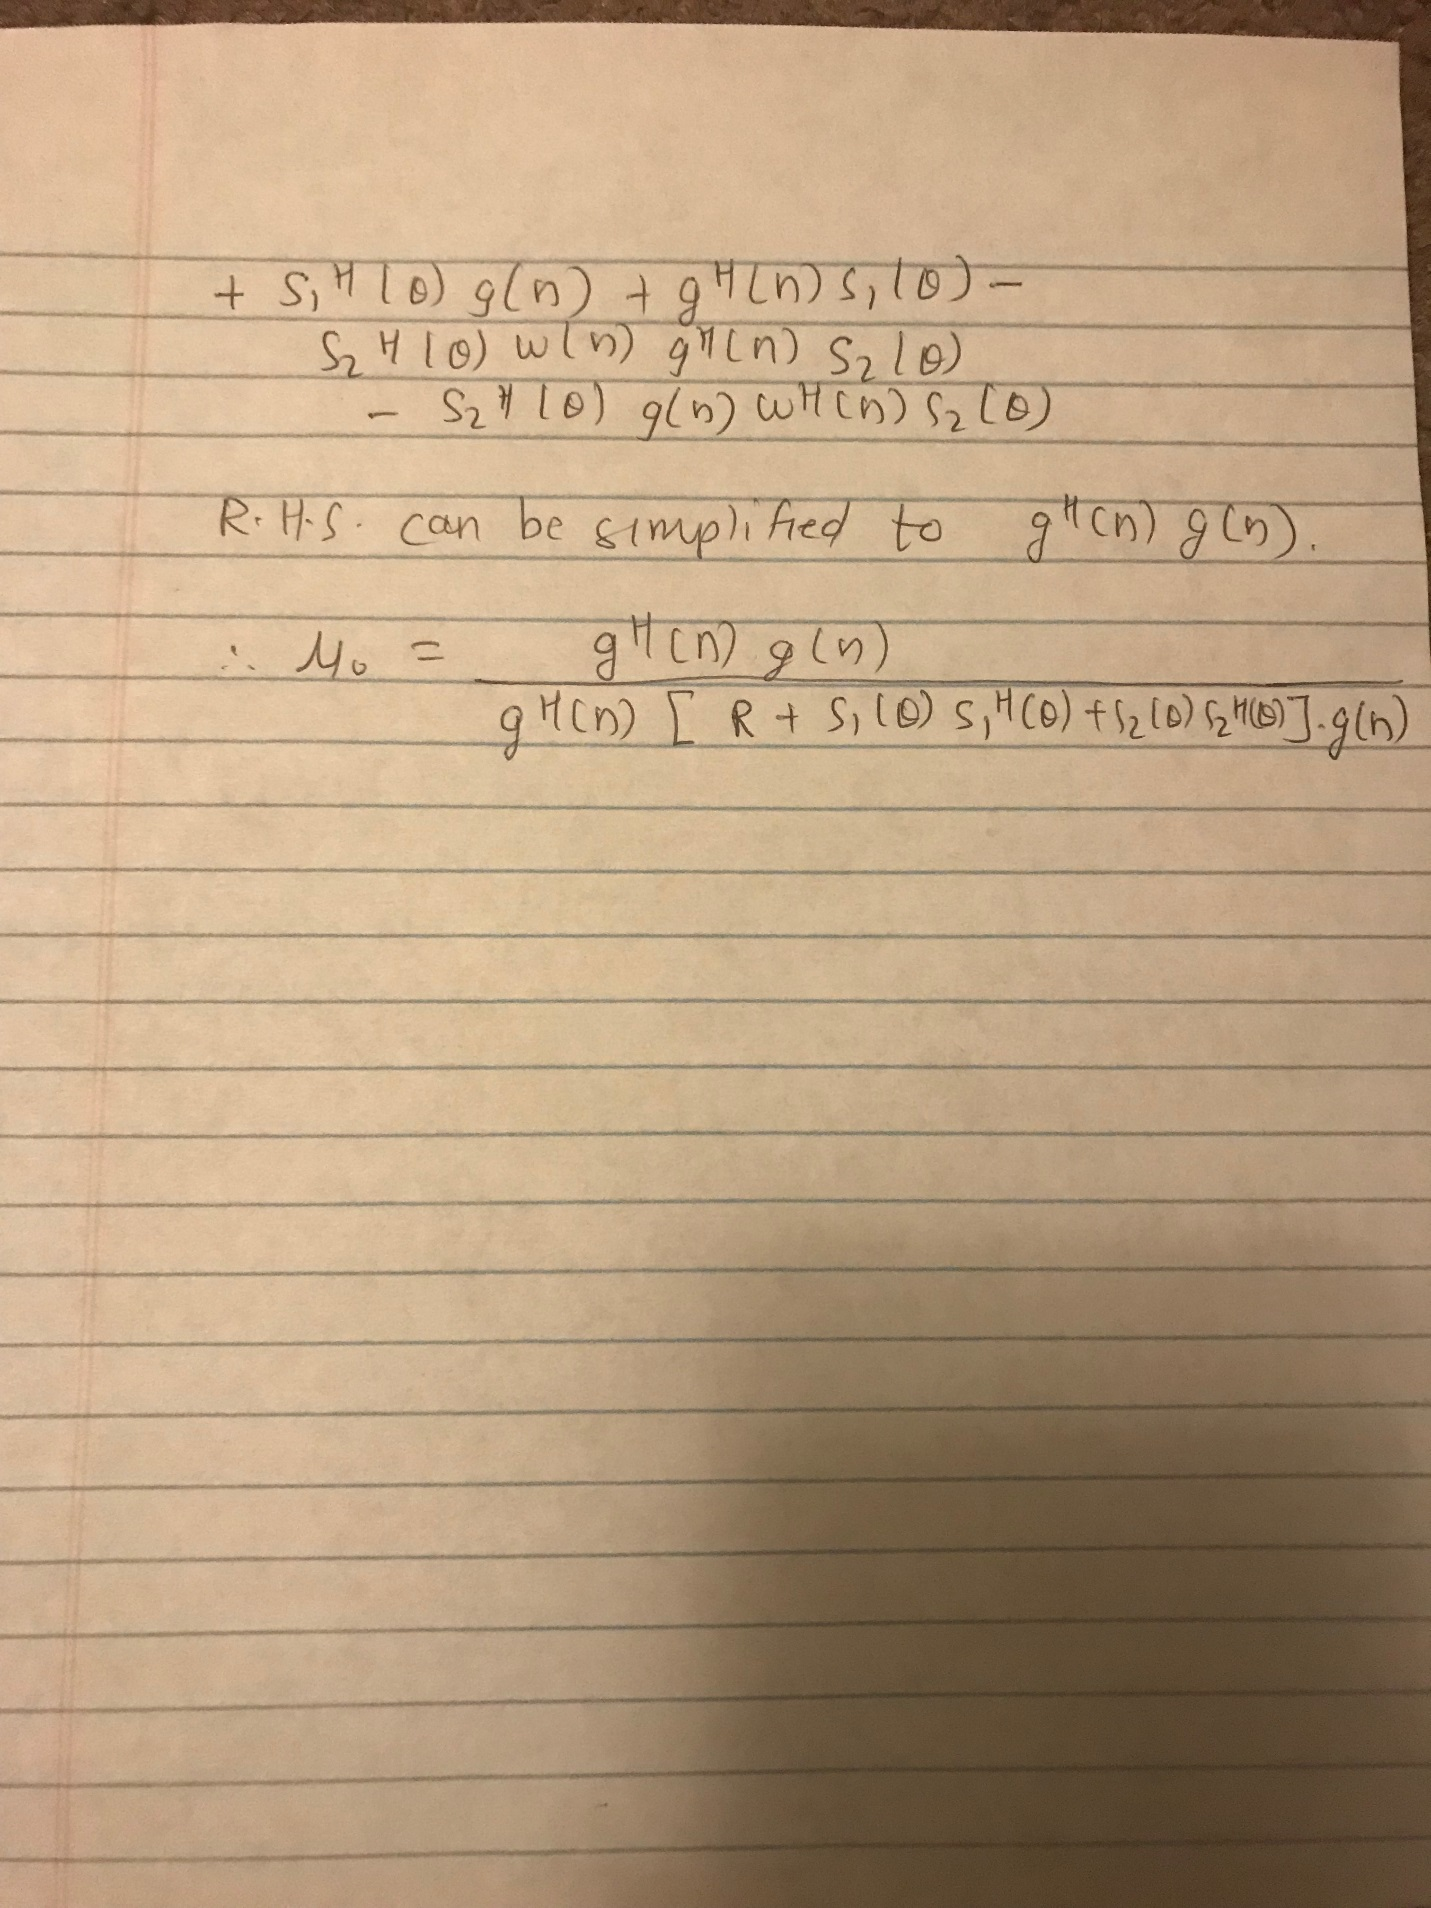 + S₁ᴴ(θ) g(n) + gᴴ(n) S₁(θ) –
S₂ᴴ(θ) w(n) gᴴ(n) S₂(θ)
– S₂ᴴ(θ) g(n) wᴴ(n) S₂(θ)
R.H.S. can be simplified to gᴴ(n) g(n).
∴ μ₀ = gᴴ(n) g(n)
gᴴ(n) [ R + S₁(θ) S₁ᴴ(θ) + S₂(θ) S₂ᴴ(θ)]·g(n)